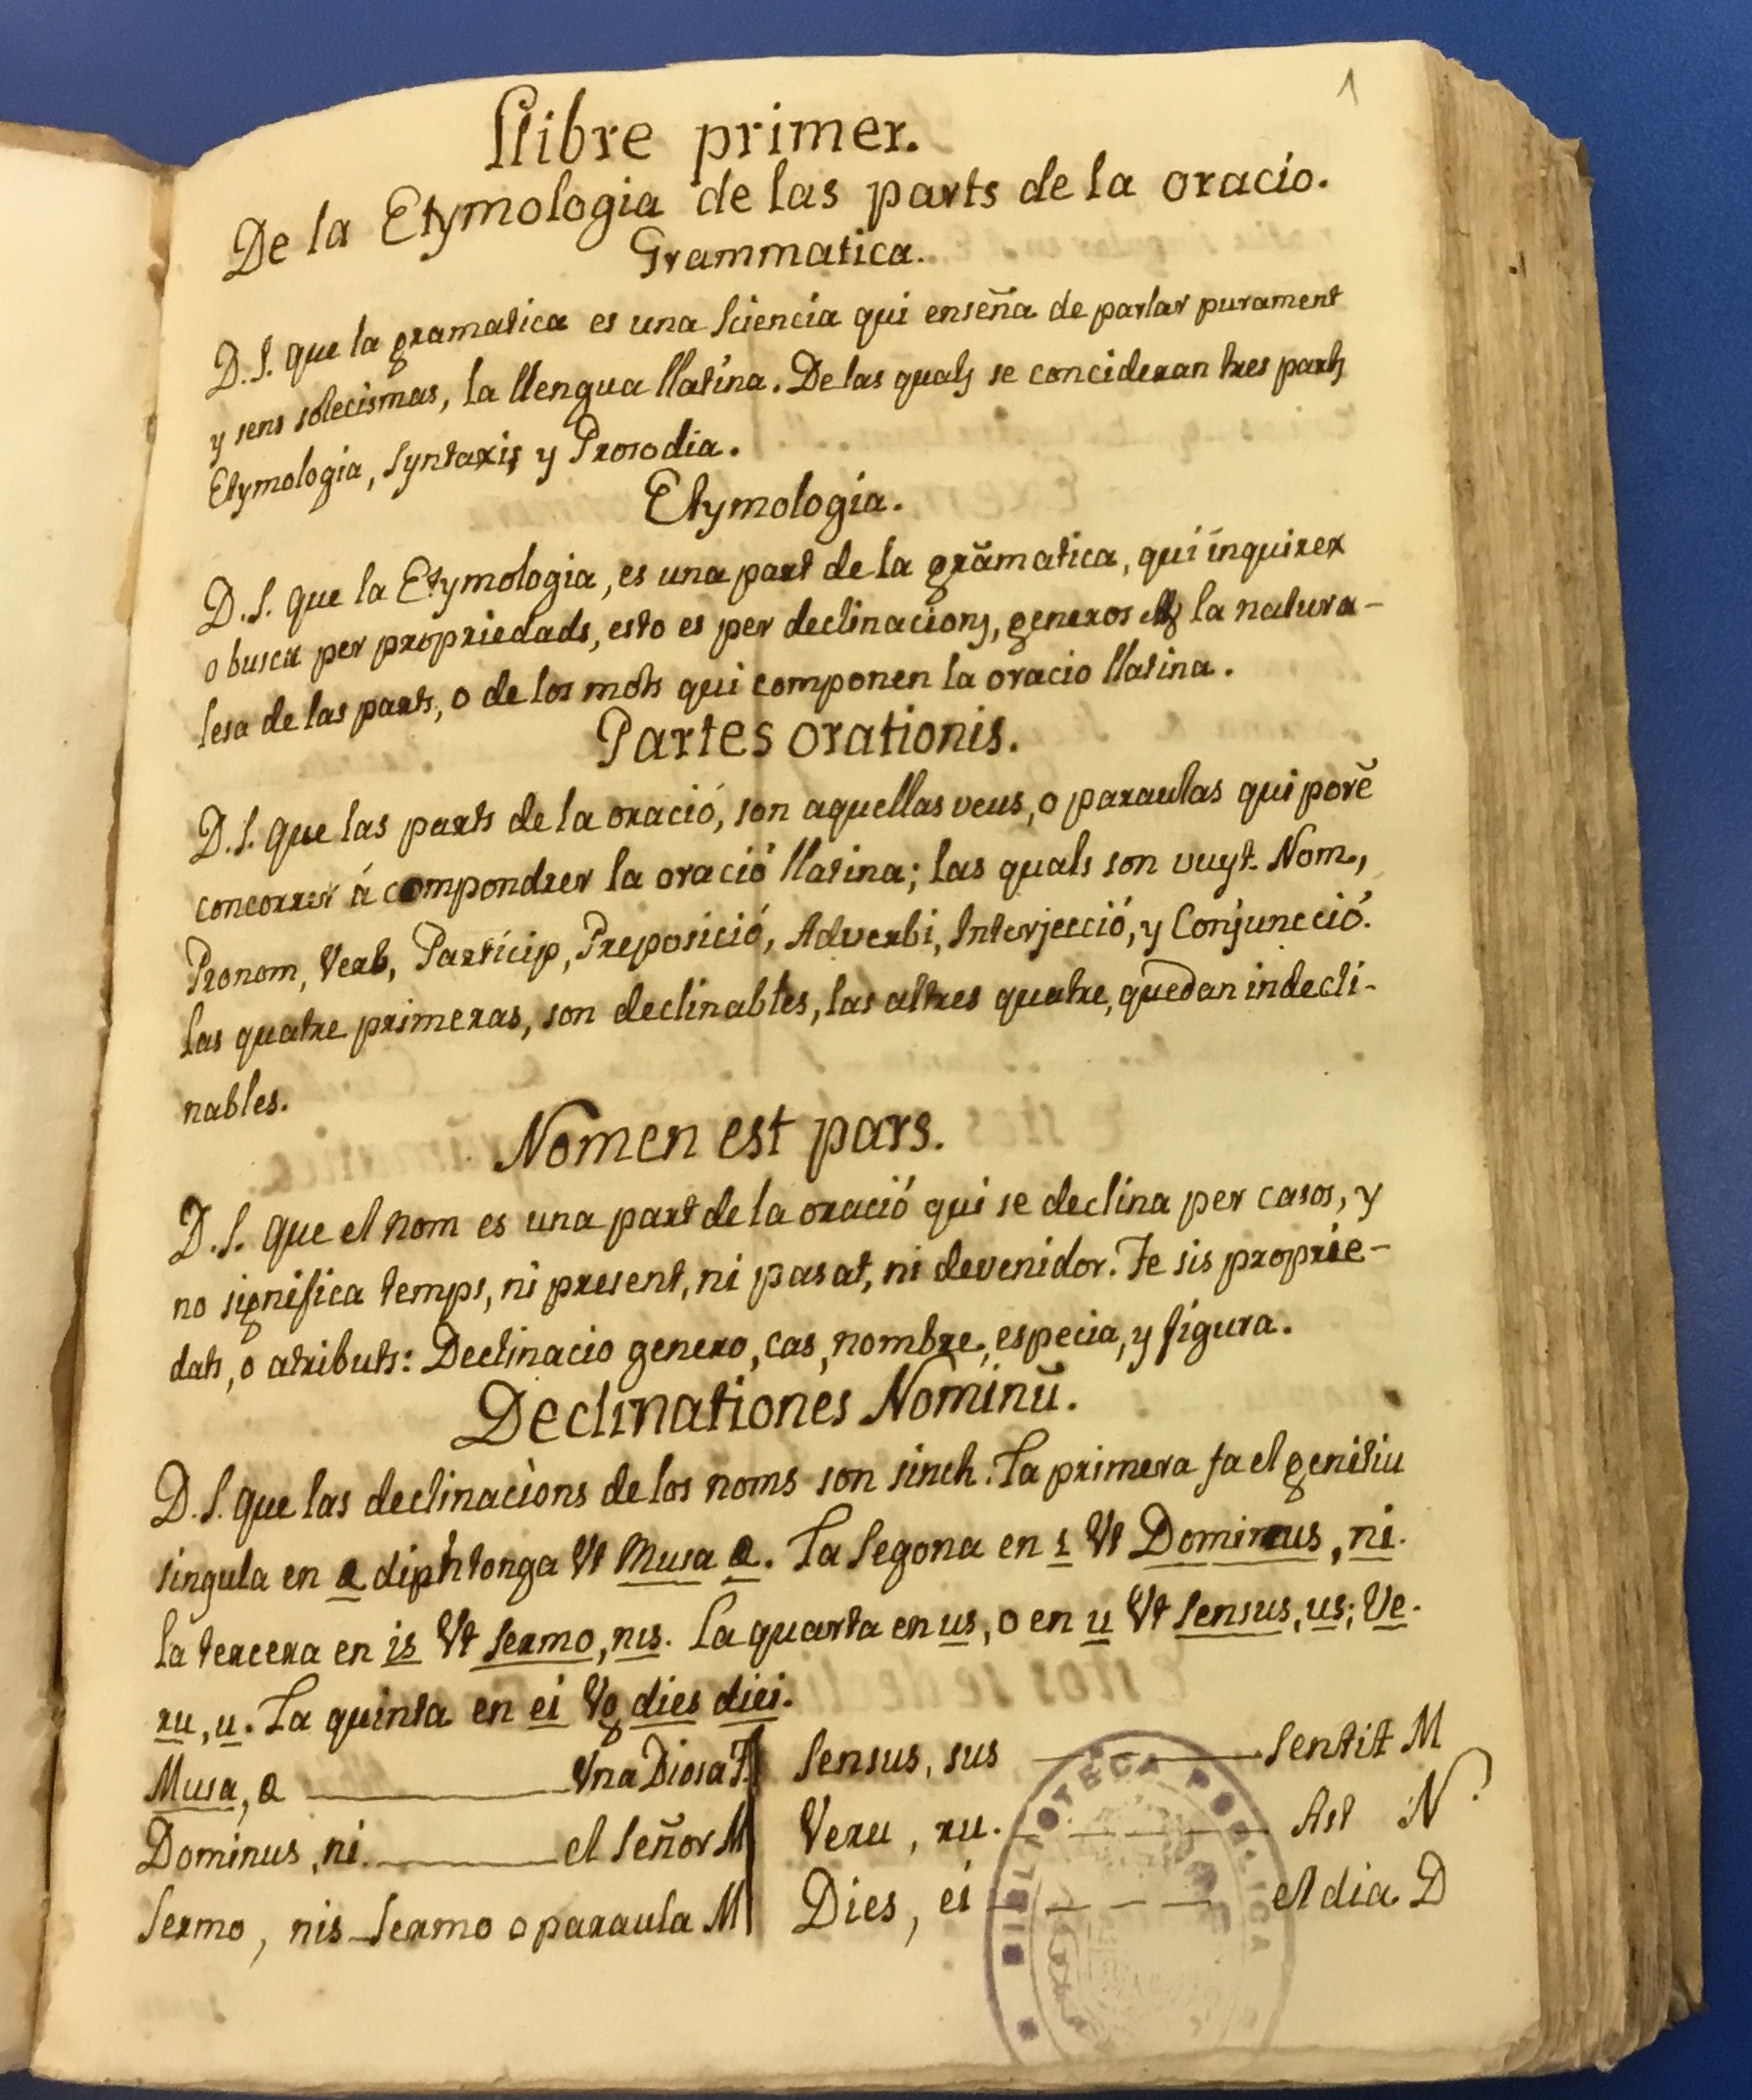 1
Llibre primer.
De la Etymologia de las parts de la oracio.
Grammatica.
D.S. que la gramatica es una Sciencia qui enseña de parlar purament
y sens solecismas, la llengua llatina. De las quals se concideran tres parts
Etymologia, Syntaxis y Prosodia.
Etymologia.
D.S. que la Etymologia, es una part de la grãmatica, qui inquirex
o busca per propriedads, esto es per declinacions, generos la natura-
lesa de las parts, o de los mots qui componen la oracio llatina.
Partes orationis.
D.S. que las parts de la oració, son aquellas veus, o paraulas qui porẽ
concorrer á compondrer la oració llatina; las quals son vuyt. Nom,
Pronom, Verb, Particip, Preposició, Adverbi, Interjecció, y Conjuncció.
las quatre primeras, son declinables, las altres quatre, quedan indecli-
nables.
Nomen est pars.
D.S. que el nom es una part de la oració qui se declina per casos, y
no significa temps, ni present, ni pasat, ni devenidor. Te sis proprie-
dats, o atributs: Declinacio genero, cas, nombre, especia, y figura.
Declinationes Nominũ.
D.S. que las declinacions de los noms son sinch. La primera fa el genitiu
singula en æ diphtonga Vt Musa æ. La Segona en i Vt Dominus, ni.
la tercera en is Vt Sermo, nis. La quarta en us, o en u Vt Sensus, us; Ve-
ru, u. La quinta en ei Vg dies diei.
Musa, æ Vna Diosa F. Sensus, sus Sentit M
Dominus, ni. el Señor M Veru, ru. Ast N
Sermo, nis Sermo o paraula M Dies, ei el dia D
BIBLIOTECA PUBLICA